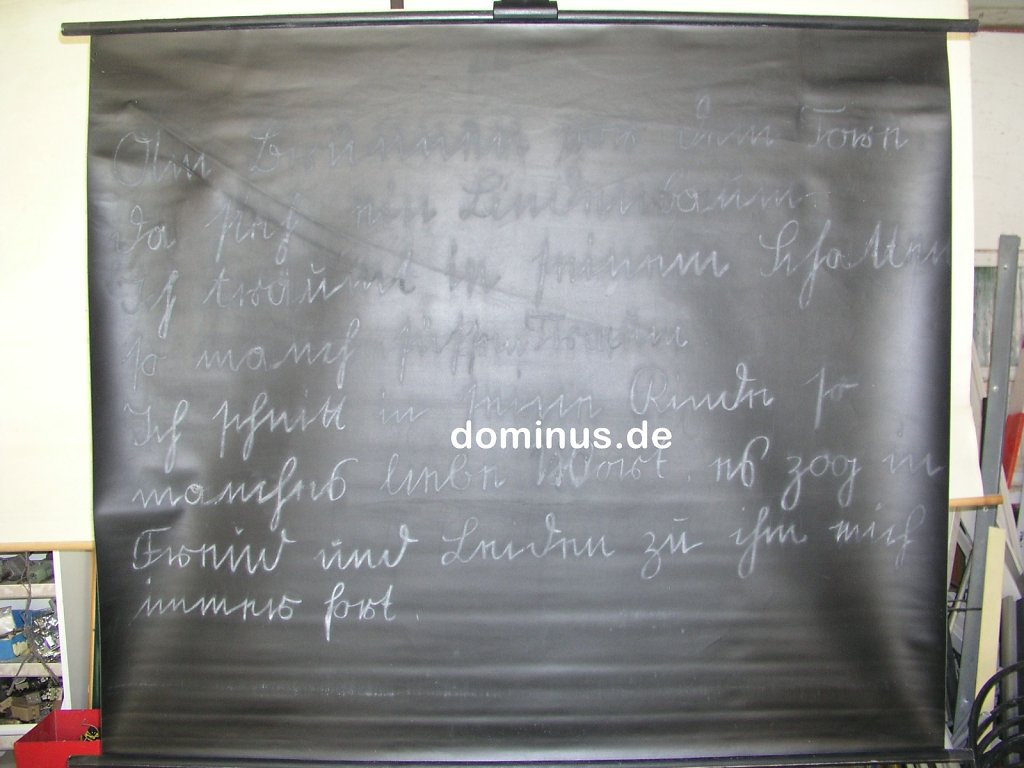 Am Brunnen vor dem Tore
da steht ein Lindenbaum
Ich träumt in seinem Schatten
so manch süssen Traum
Ich schnitt in seine Rinde so
dominus.de
manches liebe Wort. es zog in
Freud und Leiden zu ihm mich
immer fort.